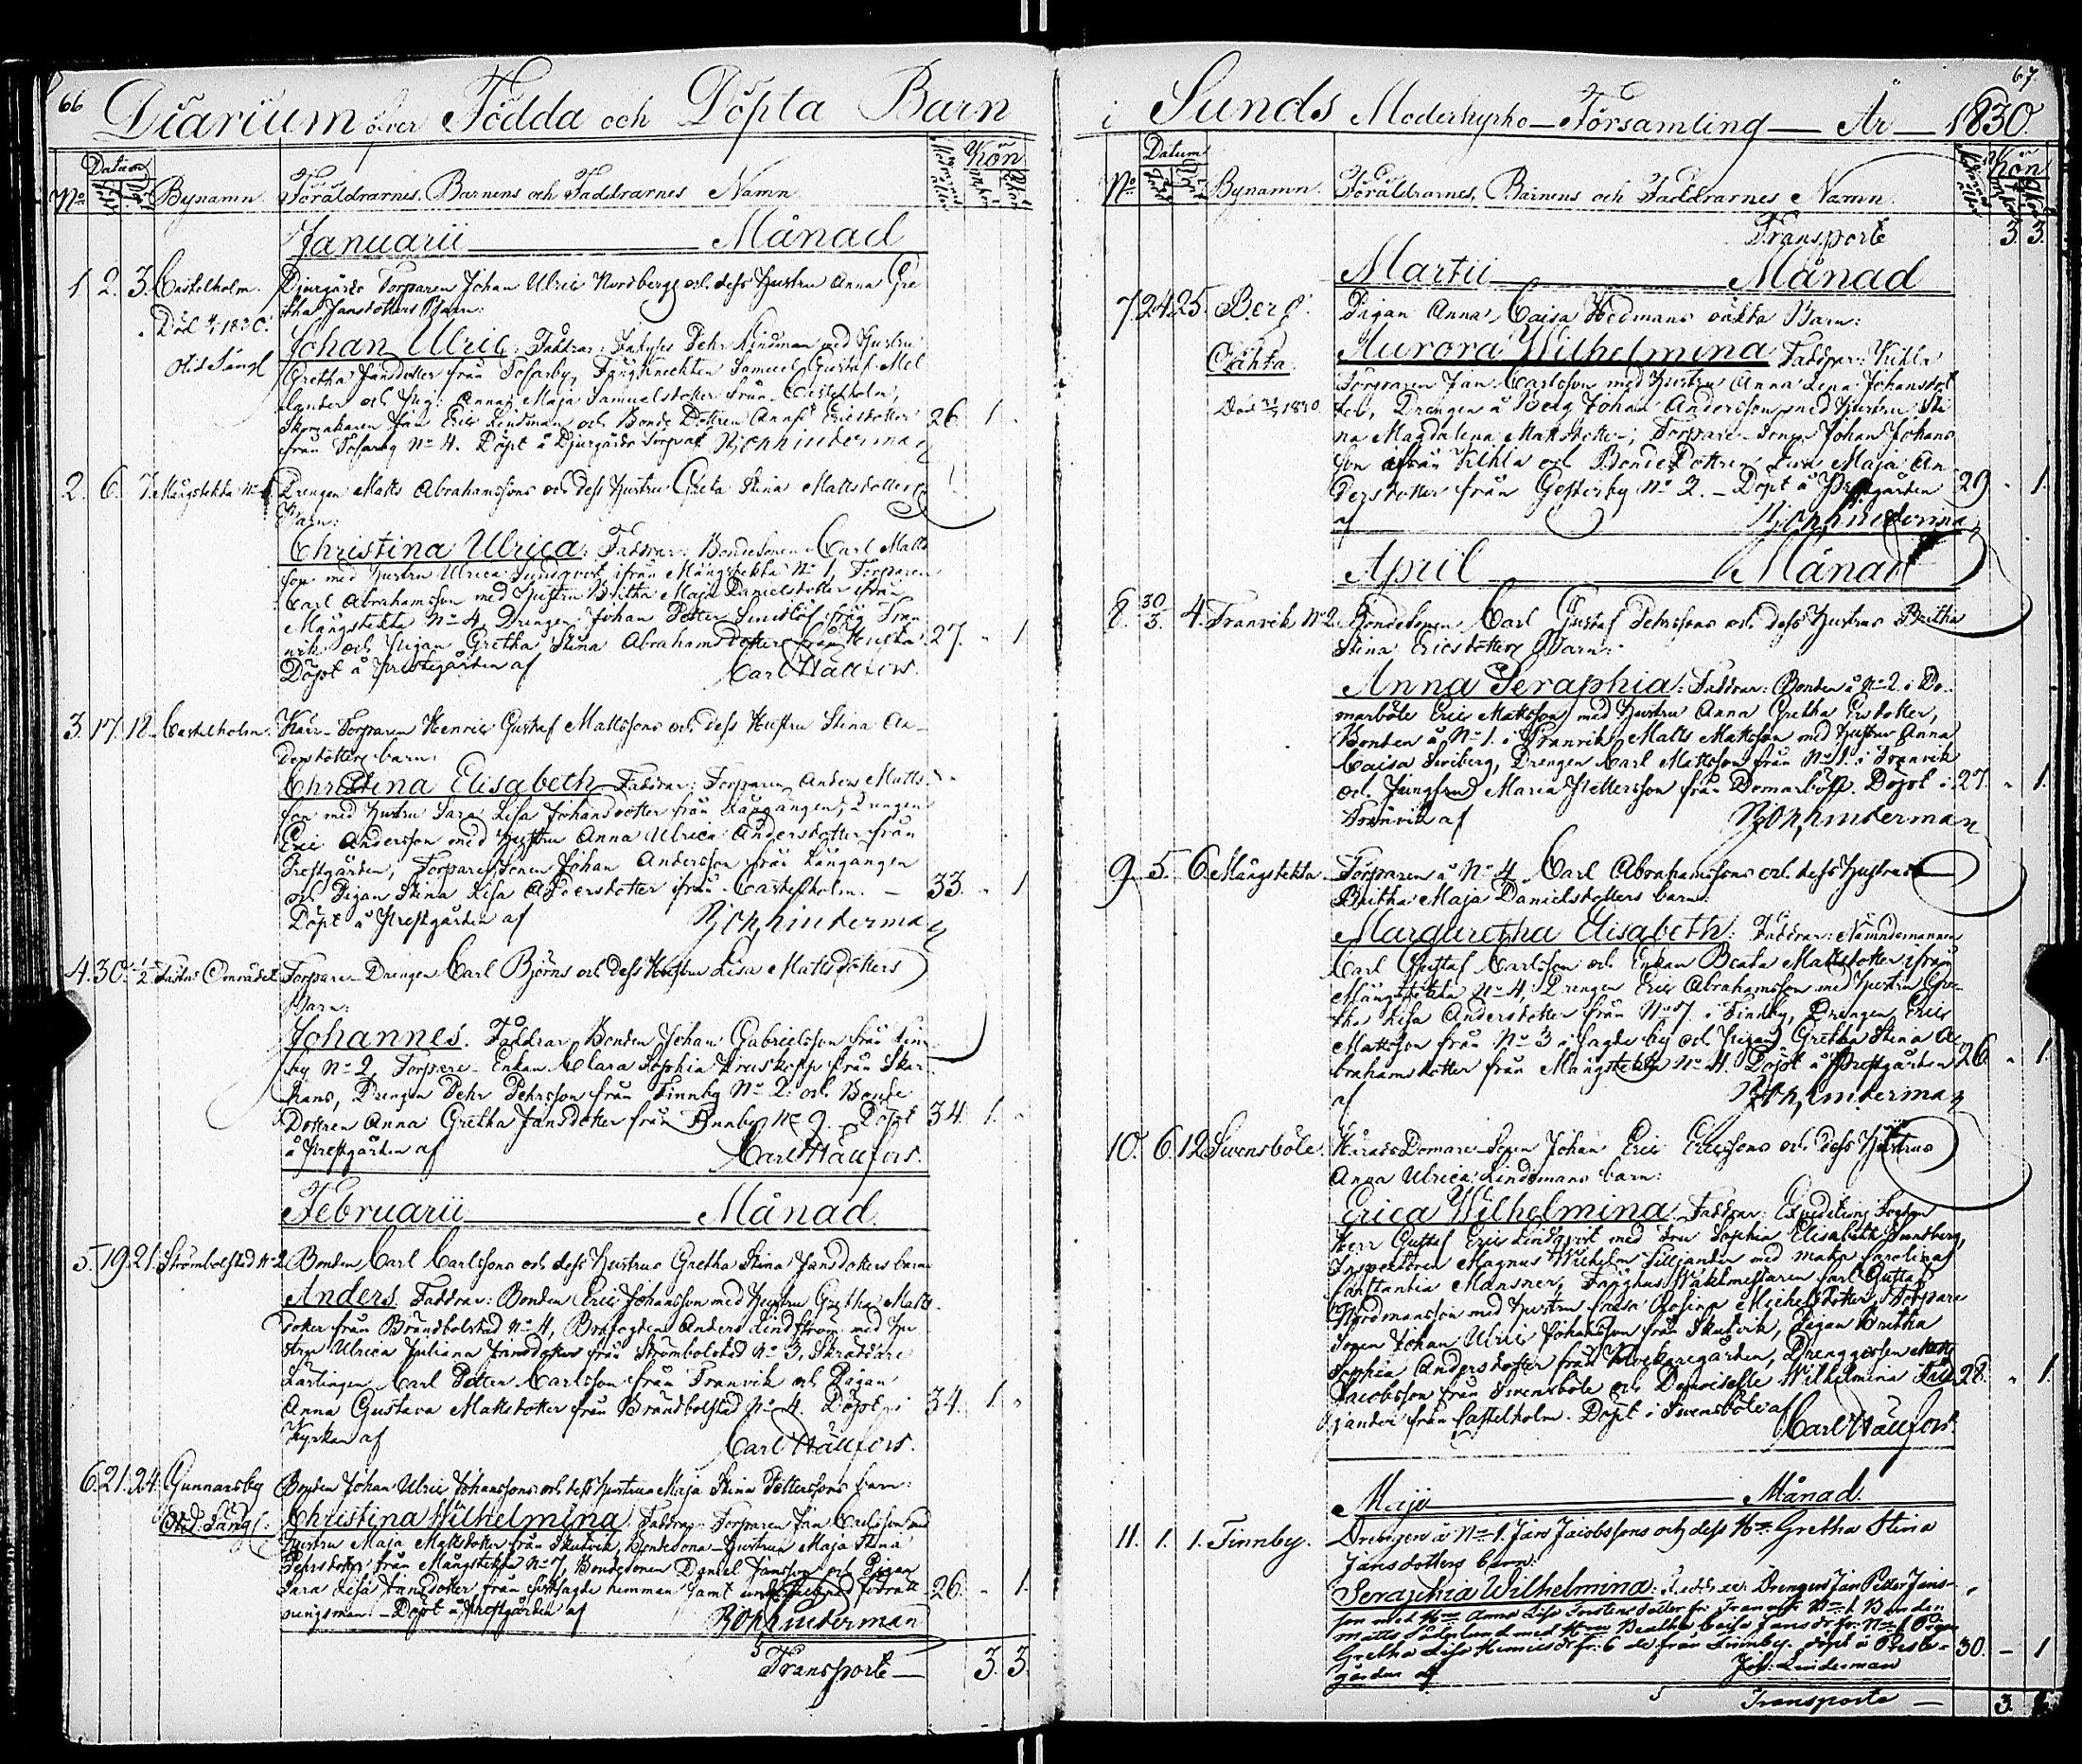 66
Diarium över Födda och Döpta Barn
No Datum Bynamn. Föräldrarnes, Barnens och Faddrarnes Namn. Kön
Januarii Månad
1. 2. 3. Castelholm. Djurgårds Torparen Johan Ulric Nordbergs och dess Hustru Anna Gre
Död 1830. tha Jansdotters Barn:
Johan Ulric. Faddrar: Pehr Lindman med Hustru
Gretha Jansdotter från Tosarby, Fångknekten Samuel Gustaf Mel
lander och Pig: Anna Maja Samuelsdotter från Castelholm,
Skomakaren Jan Eric Lindman och Bonde Dottren Anna Ericsdotter 26. 1.
från Tosarby No 4. Döpt å Djurgårds Torpet af Joh Linderman
2. 6. 7. Mångstekta No Drengen Matts Abrahamssons och dess Hustru Greta Stina Mattsdotters
Barn:
Christina Ulrica: Faddrar: Bondesonen Carl Matts
son med Hustru Ulrica Sundqvist ifrån Mångstekta No 1, Torparen
Carl Abrahamsson med Hustru Britha Maja Danielsdotter ifrån
Mångstekta No 4, Drengen Johan Petter ifrån Tran
vik och Pigan Gretha Stina Abrahamsdotter från 27. - 1
Döpt å Prestegården af Carl Hällfors.
3. 17. 18. Castelholm. Torparen Henric Gustaf Mattssons och dess Hustru Stina An-
dersdotters barn:
Christina Elisabeth Faddrar: Torparen Anders Matts-
son med Hustru Sara Lisa Johansdotter från Långängen, Drengen
Eric Andersson med Hustru Anna Ulrica Andersdotter från
Prestgården, Torpare Sonen Johan Andersson från Längängen
och Pigan Stina Lisa Andersdotter ifrån Castelholm. - 33. - 1
Döpt å Prestgården af Joh Linderman
4. 30. 1/2 Torpare-Drengen Carl Björns och dess Hustru Lisa Mattsdotters
Barn:
Johannes. Faddrar Bonden Johan Gabrielsson från Finn
by No 2, Torpare-Enkan Clara Sophia från Skar
pans, Drengen Pehr Pehrsson från Finnby No 2: och Bonde
Dottren Anna Gretha Jansdotter från Finnby No 2. Döpt 34. 1. -
å Prestgården af Carl Hällfors.
Februarii Månad.
5. 19. 21. Strömbolstad No 2 Bonden Carl Carlssons och dess Hustrus Gretha Stina Jansdotters barn
Anders. Faddrar: Bonden Eric Johansson med Hustru Gretha Matts-
dotter från Brändbolstad No 4, Anders Lindström med Hu
stru Ulrica Juliana Jansdotter från Strömbolstad No 3, Skräddare
Lärlingen Carl Petter Carlsson från Tranvik och Pigan
Anna Gustava Mattsdotter från Brändbolstad No 4. Döpt i 34. 1. -
Kyrkan af Carl Hällfors.
6. 21. 24. Gunnarsby Bonden Johan Ulric Johanssons och dess Hustrus Maja Stina Pettersson barn:
Christina Wilhelmina. Faddrar: Torparen Jan Carlsson med
Hustru Maja Mattsdotter från Skutvik, Bondesona-Hustrun Maja Stina
Pehrsdotter från Mångstekta No 7, Bondesonen Daniel Jansson och Pigan
Sara Lisa Jansdotter från sistsagde hemman samt 26. - 1.
Döpt å Prestgården af Joh Linderman
Transporte — 3. 3.
67
i Sunds Moderkyrko-Församling — År — 1830.
No Datum Bynamn. Föräldrarnes, Barnens och Faddrarnes Namn. Kön
Transporte 3. 3.
Martii Månad
7. 24. 25. Berg. Pigan Anna Caisa Hedmans oäkta Barn:
Oäkta. Aurora Wilhelmina Faddrar:
Torparen Jan Carlsson med Hustru Anna Lena Johansdot
Död 1830 ter, Drengen å Berg Johan Andersson med Hustru Sti
na Magdalena Mattsdotter; Torpare-Sonen Johan Johans
son ifrån och Bonde Dottren Maja An-
dersdotter från Gesterby No 2. - Döpt å Prestgården 29 - 1.
af Joh Linderman
April Månad
8. 30/3. 4. Tranvik No 2. Bondesonen Carl Gustaf Pehrssons och dess Hustrus Britha
Stina Ericsdotters Barn:
Anna Seraphia: Faddrar: Bonden å No 2. i Do-
marböle Eric Mattsson med Hustru Anna Gretha Ersdotter,
Bonden å No 1. i Tranvik Matts Mattsson med Hustru Anna
Caisa Sviberg, Drengen Carl Mattsson från No 1. i Tranvik
och Jungfrun Maria Pettersson från Domarböle. Döpt i 27. - 1.
Tranvik af Joh Linderman
9. 5. 6. Mångstekta. Torparen å No 4 Carl Abrahamssons och dess Hustrus
Britha Maja Danielsdotters barn:
Margaretha Elisabeth: Faddrar: Nämndemannen
Carl Gustaf Carlsson och Enkan Beata Mattsdotter ifrån
Mångstekta No 4, Drengen Eric Abrahamsson med Hustru Gre-
tha Lisa Andersdotter från No 7. i Finnby, Drengen Eric
Mattsson från No 3 i Sagde by och Pigan Gretha Stina A-
brahamsdotter från Mångstekta No 4. Döpt å Prestgården 26. - 1.
af Joh Linderman
10. 6. 12. Svensböle. Härads Domare-Sonen Johan Eric Ericssons och dess Hustrus
Anna Ulrica Lindemans barn:
Erica Wilhelmina Faddrar: Expeditions Fogden
Herr Gustaf Eric Lindqvist med Fru Sophia Elisabeth Sundberg,
Inspektoren Magnus Wilhelm Silljander med maka Carolina
Constantia Mansner, Fånghus Wakt mestaren Carl Gustaf
Nordmansson med Hustru Caisa Rosina Michelsdotter, Torpare
Sonen Johan Ulric Johansson från Skutvik, Pigan Britha
Sophia Andersdotter från Klockaregården, Drenggossen Matts
Jacobsson från Svensböle och Demoiselle Wilhelmina Sill 28. - 1.
jander från Castelholm. Döpt i Svensböle af Carl Hällfors.
Maji Månad.
11. 1. 1. Finnby. Drengen å No 1. Jan Jacobssons och dess Hu Gretha Stina
Jansdotters barn:
Seraphia Wilhelmina: Faddrar: Drengen Jan Petter Jans-
son med Hu Anna Lisa Torstensdotter fr: Tranvik No 1 Bonden
Matts Söderlund med Hu Beatha Caisa Jansdr fr: No 1 Pigan
Gretha Lisa Henricsdr fr: 6 de från Finnby. döpt å Prest- 30. - 1
gården af Joh. Linderman
Transporte — 3.